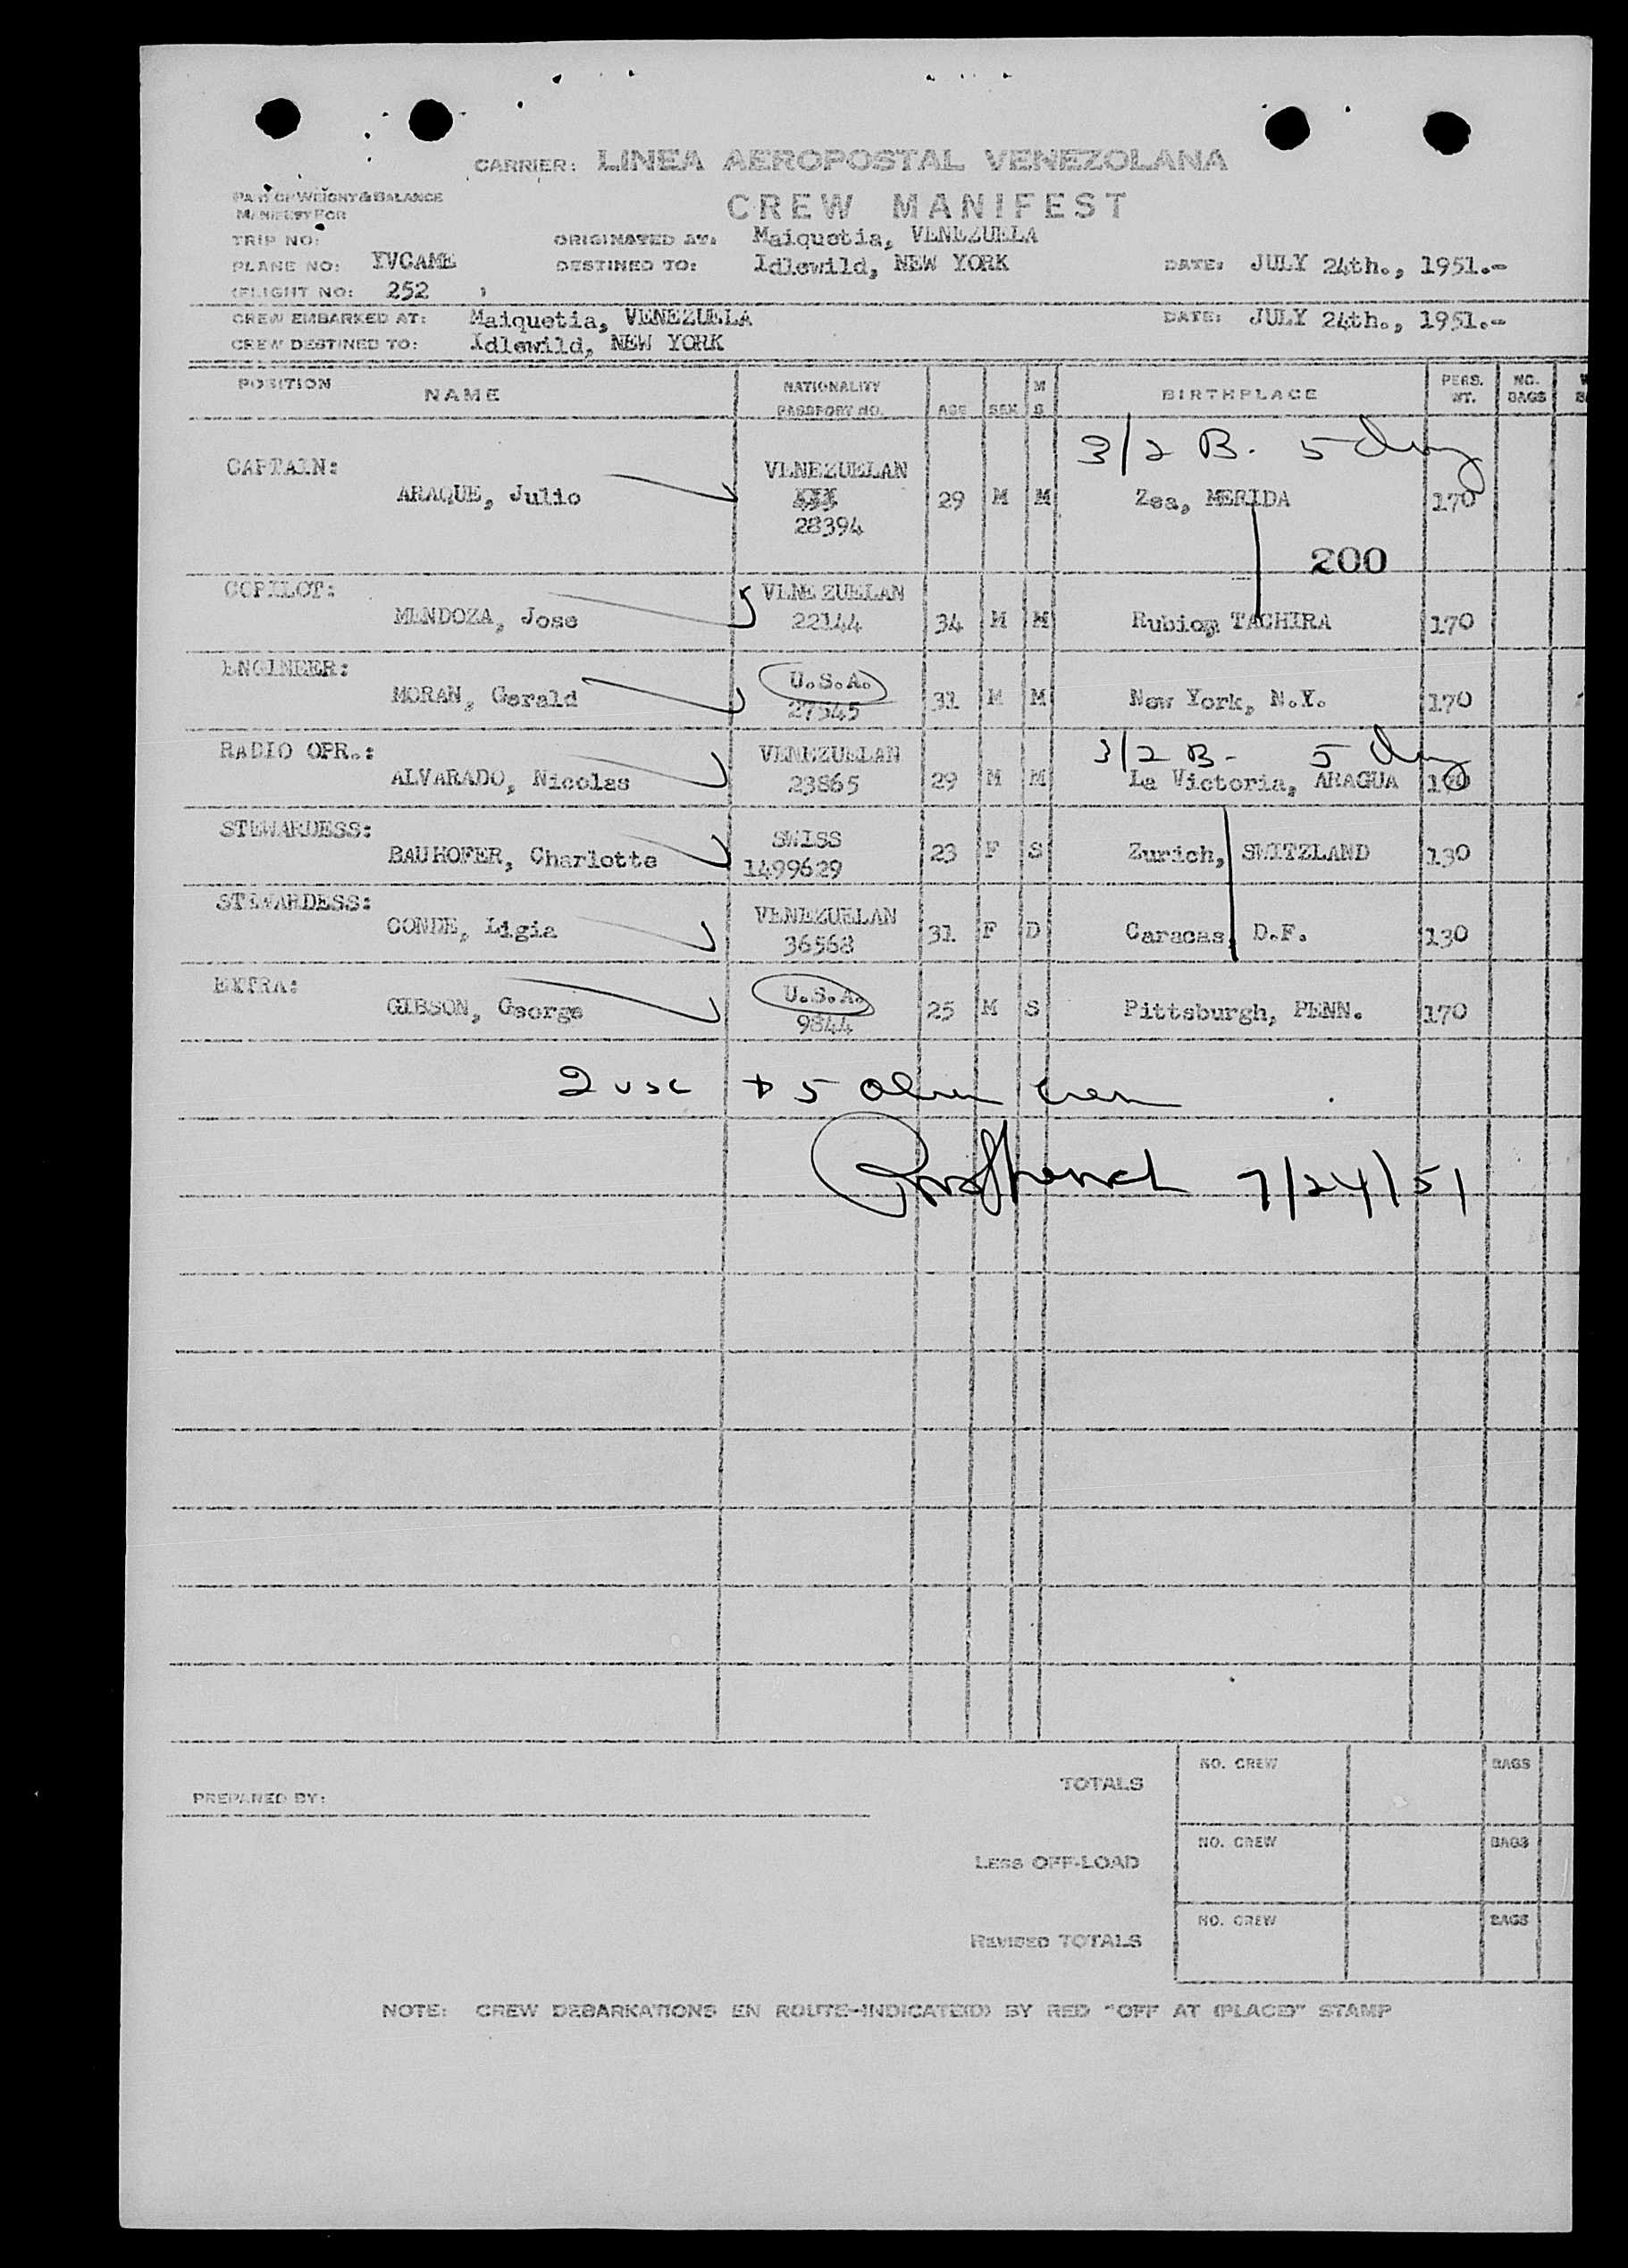 CARRIER: LINEA AEROPOSTAL VENEZOLANA
PART OF WEIGHT & BALANCE
MANIFEST FOR
CREW MANIFEST
TRIP NO: ORIGINATED AT: Maiquetia, VENEZUELA
PLANE NO: YVCAME DESTINED TO: Idlewild, NEW YORK DATE: JULY 24th., 1951.-
(FLIGHT NO: 252 )
CREW EMBARKED AT: Maiquetia, VENEZUELA DATE: JULY 24th., 1951.-
CREW DESTINED TO: Idlewild, NEW YORK
POSITION NAME NATIONALITY PASSPORT NO. AGE SEX M S BIRTHPLACE PERS. WT. NO. BAGS
3/2 B. 5 day
CAPTAIN: VENEZUELAN
ARAQUE, Julio XXX 29 M M Zea, MERIDA 170
28394
200
COPILOT: VENEZUELAN
MENDOZA, Jose 22144 34 M M Rubio, TACHIRA 170
ENGINEER: U.S.A.
MORAN, Gerald 27545 31 M M New York, N.Y. 170
RADIO OPR.: VENEZUELAN 3/2 B- 5 day
ALVARADO, Nicolas 23865 29 M M La Victoria, ARAGUA 170
STEWARDESS: SWISS
BAUHOFER, Charlotte 1499629 23 F S Zurich, SWITZLAND 130
STEWARDESS: VENEZUELAN
CONDE, Ligia 36568 31 F D Caracas, D.F. 130
EXTRA: U.S.A.
GIBSON, George 9844 25 M S Pittsburgh, PENN. 170
2 usc + 5 alien crew
7/24/51
TOTALS NO. CREW BAGS
PREPARED BY:
LESS OFF-LOAD NO. CREW BAGS
REVISED TOTALS NO. CREW BAGS
NOTE: CREW DEBARKATIONS EN ROUTE-INDICATE(D) BY RED "OFF AT (PLACE)" STAMP